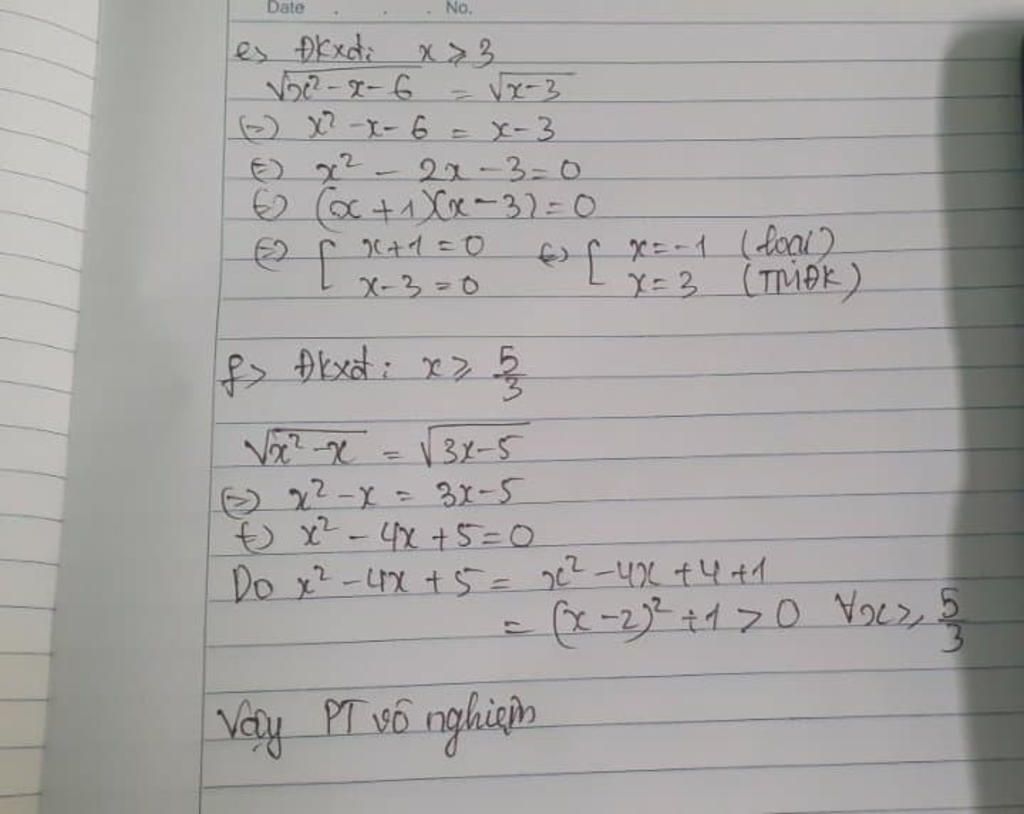 Date . . . No.
e> Đkxđ: x ≥ 3
√x² - x - 6 = √x-3
(=) x² - x - 6 = x - 3
(=) x² - 2x - 3 = 0
(=) (x + 1)(x - 3) = 0
(=) [ x + 1 = 0 (=) [ x = -1 (loại)
x - 3 = 0 x = 3 (TMĐK)
f> Đkxđ: x ≥ 5/3
√x² - x = √3x-5
(=) x² - x = 3x - 5
(=) x² - 4x + 5 = 0
Do x² - 4x + 5 = x² - 4x + 4 + 1
= (x - 2)² + 1 > 0 ∀x ≥ 5/3
Vậy PT vô nghiệm